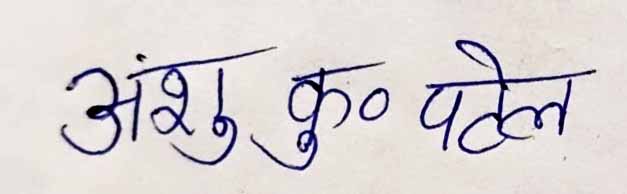 अंशु कु० पटेल